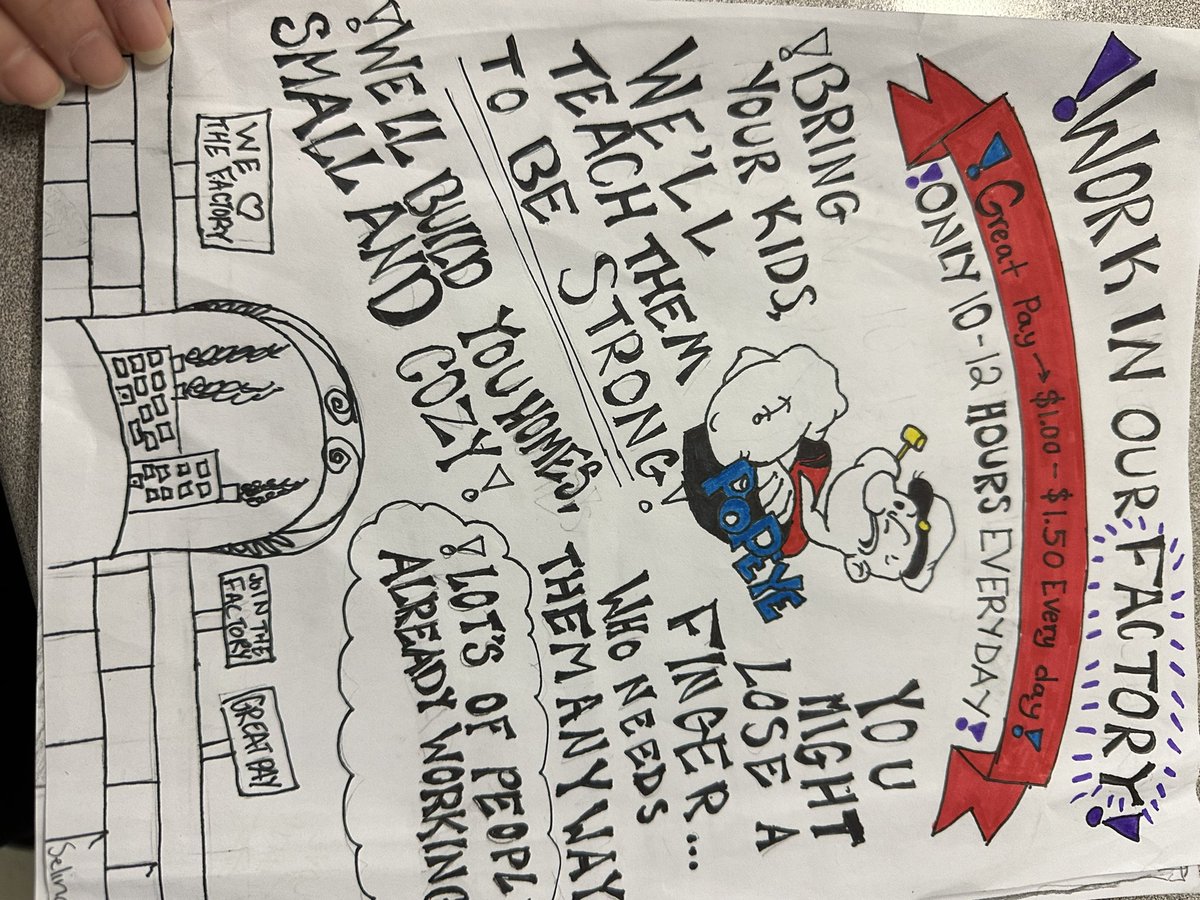 ¡WORK IN OUR FACTORY!
¡Great Pay → $1.00 - $1.50 Every day!
¡ONLY 10-12 HOURS EVERYDAY!
¡BRING
YOUR KIDS,
WE'LL
TEACH THEM
TO BE STRONG!
POPEYE
YOU
MIGHT
LOSE A
FINGER...
WHO NEEDS
THEM ANYWAY
¡WELL BUILD YOU HOMES,
SMALL AND COZY!
¡LOT'S OF PEOPL
ALREADY WORKING
WE ♡
THE FACTORY
JOIN THE
FACTORY
GREAT PAY
Selina